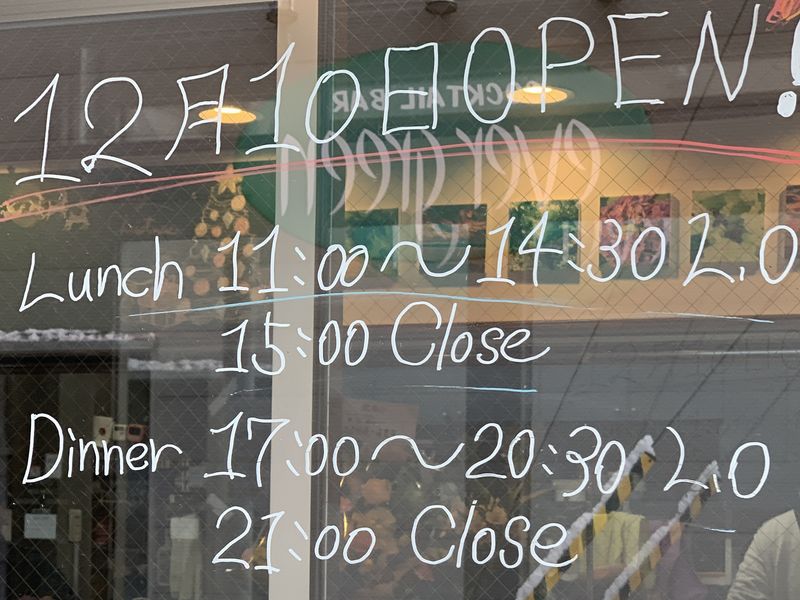 12月10日OPEN!
COCKTAIL BAR
ever green
Lunch 11:00～14:30 L.O
15:00 Close
Dinner 17:00～20:30 L.O
21:00 Close